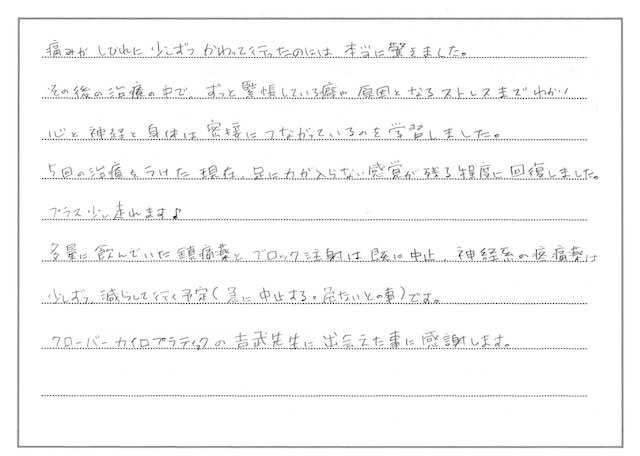 痛みが しびれに 少しずつ かわって行ったのには 本当に驚きました。
その後の治療の中で、ずっと緊張している癖や 原因となるストレスまでわかり
心と神経と身体は密接につながっているのを学習しました。
5回の治療をうけた現在、足に力が入らない感覚が残る程度に回復しました。
プラス少し走れます♪
多量に飲んでいた鎮痛薬とブロック注射は既に中止、神経系の疼痛薬は
少しずつ減らして行く予定(急に中止すると危ないとの事)です。
クローバーカイロプラティックの吉武先生に出会えた事に感謝します。